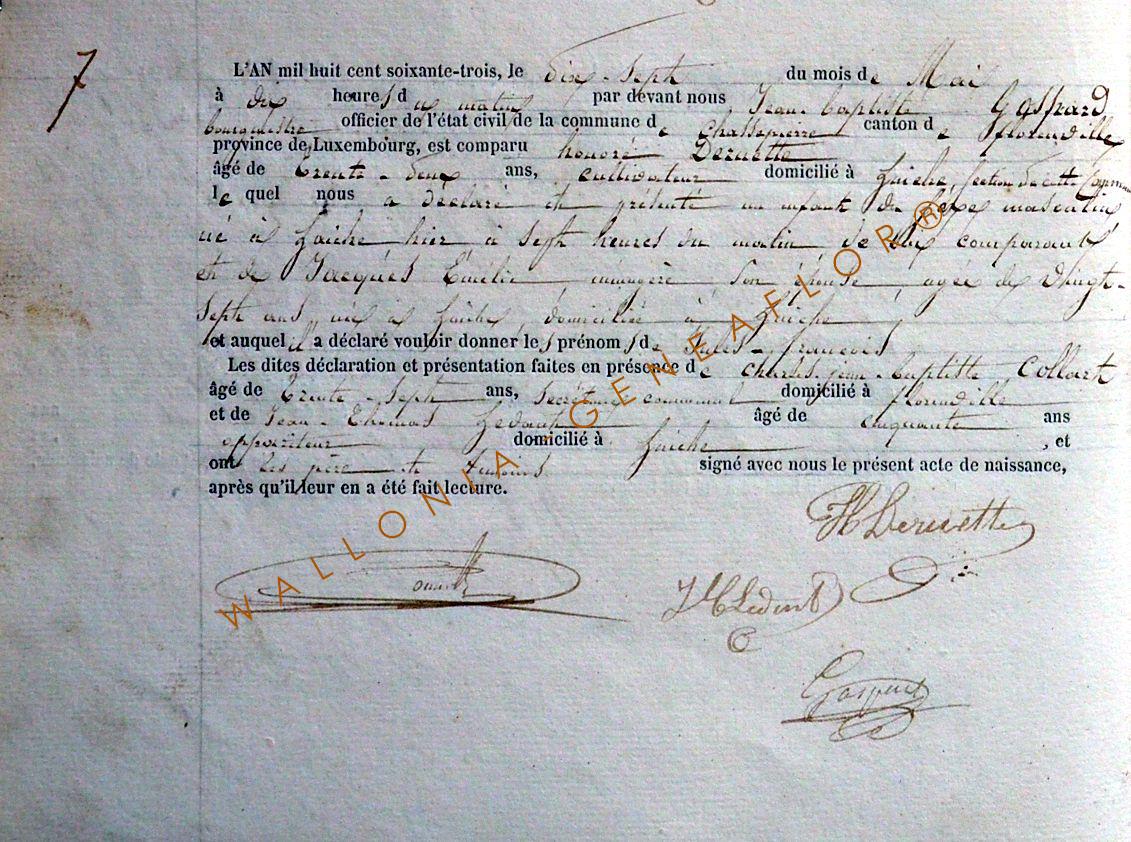 7
L'AN mil huit cent soixante-trois, le dix-sept du mois de Mai
à dix heures du matin par devant nous Jean-baptiste Gaspard
bourgmestre officier de l'état civil de la commune de Chassepierre canton de florenville
province de Luxembourg, est comparu honoré Deruette
âgé de trente-deux ans, cultivateur domicilié à Laiche, section de cette Commune
lequel nous a déclaré et présenté un enfant du sexe masculin
né à Laiche hier à sept heures du matin de lui comparant
et de Jacques Emélie, ménagère, son épouse, agée de vingt-
sept ans, née à Laiche, domiciliée à Laiche
et auquel il a déclaré vouloir donner les prénoms de Jules-françois
Les dites déclaration et présentation faites en présence de charles jean-baptiste Collart
âgé de trente-sept ans, secrétaire communal domicilié à florenville
et de Jean-Thomas âgé de cinquante ans
appariteur domicilié à Laiche, et
ont les père et témoins signé avec nous le présent acte de naissance,
après qu'il leur en a été fait lecture.
H Deruette
Gaspard
WALLONIA - GENEAFLOR®